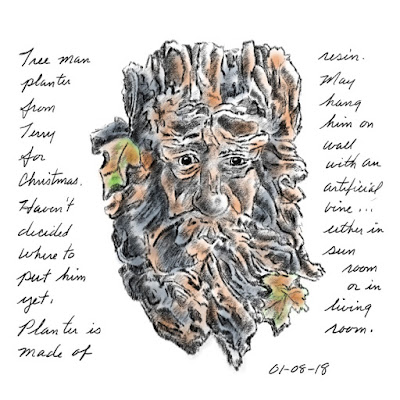 Tree man
planter
from
Terry
for
Christmas.
Haven't
decided
where to
put him
yet.
Planter is
made of
resin.
May
hang
him on
wall
with an
artificial
vine...
either in
sun
room
or in
living
room.
01-08-18